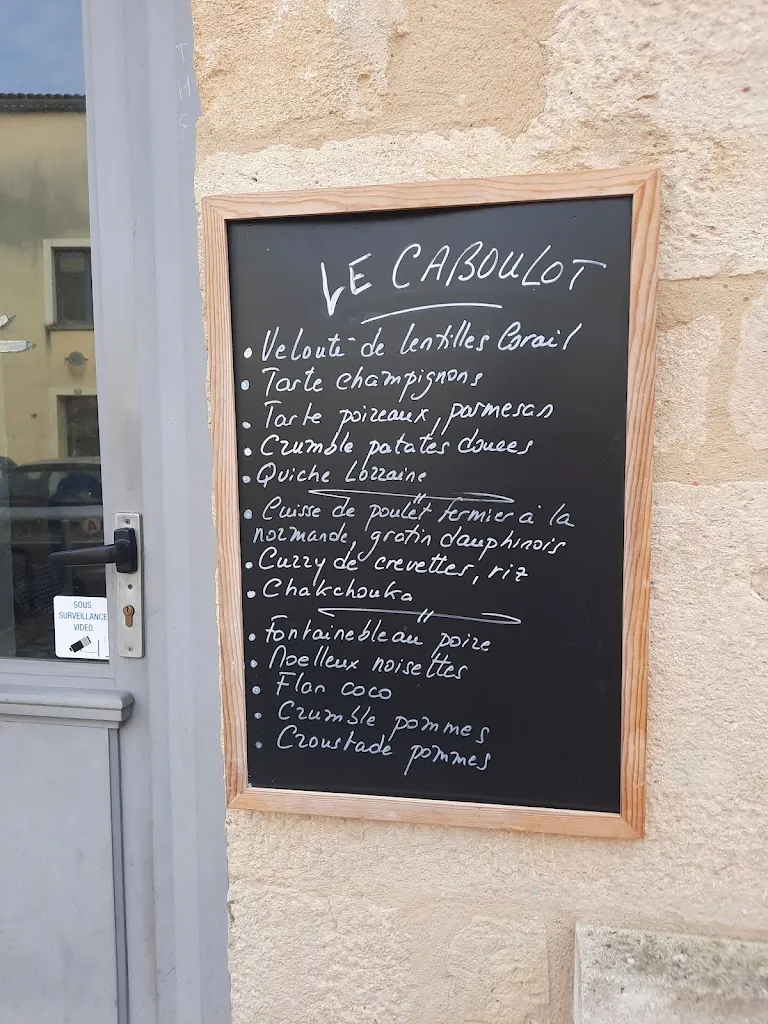 LE CABOULOT
• Velouté de lentilles Corail
• Tarte champignons
• Tarte poireaux, parmesan
• Crumble patates douces
• Quiche Lorraine
• Cuisse de poulet fermier à la
normande, gratin dauphinois
• Curry de crevettes, riz
• Chakchouka
• Fontainebleau poire
• Moelleux noisettes
• Flan coco
• Crumble pommes
• Croustade pommes
SOUS
SURVEILLANCE
VIDEO